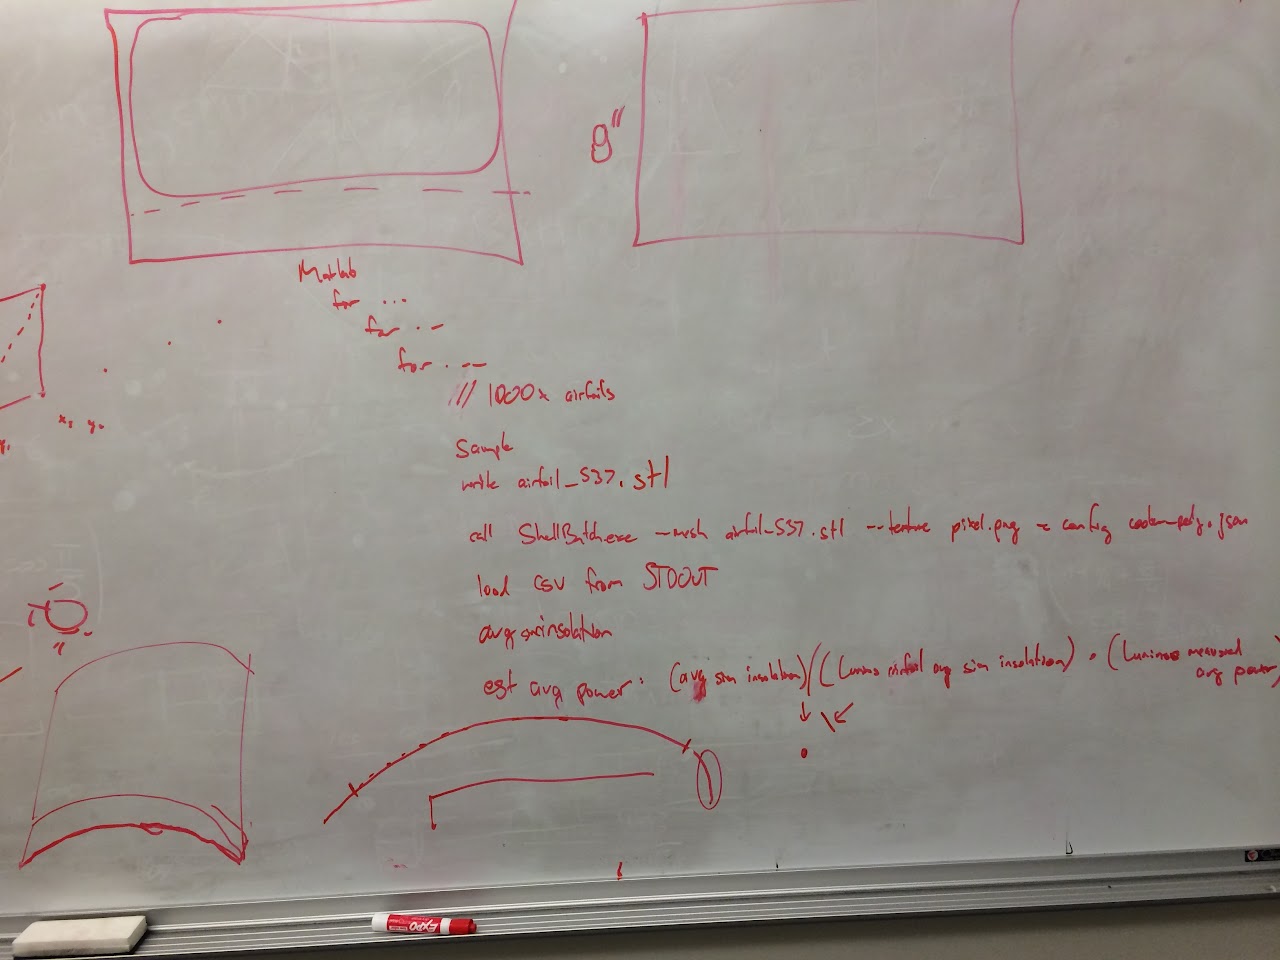 8"
Matlab
for ...
for . --
for . ---
/// 1000x airfoils
x₃ y₀
Sample
write airfoil_537.stl
call ShellBatch.exe --mesh airfoil_537.stl --texture pixel.png -c config .json
load CSV from STDOUT
avg sim insolation
est avg power: (avg sim insolation)/((Luminos airfoil avg sim insolation) · (Luminos measured
avg power)
EXPO